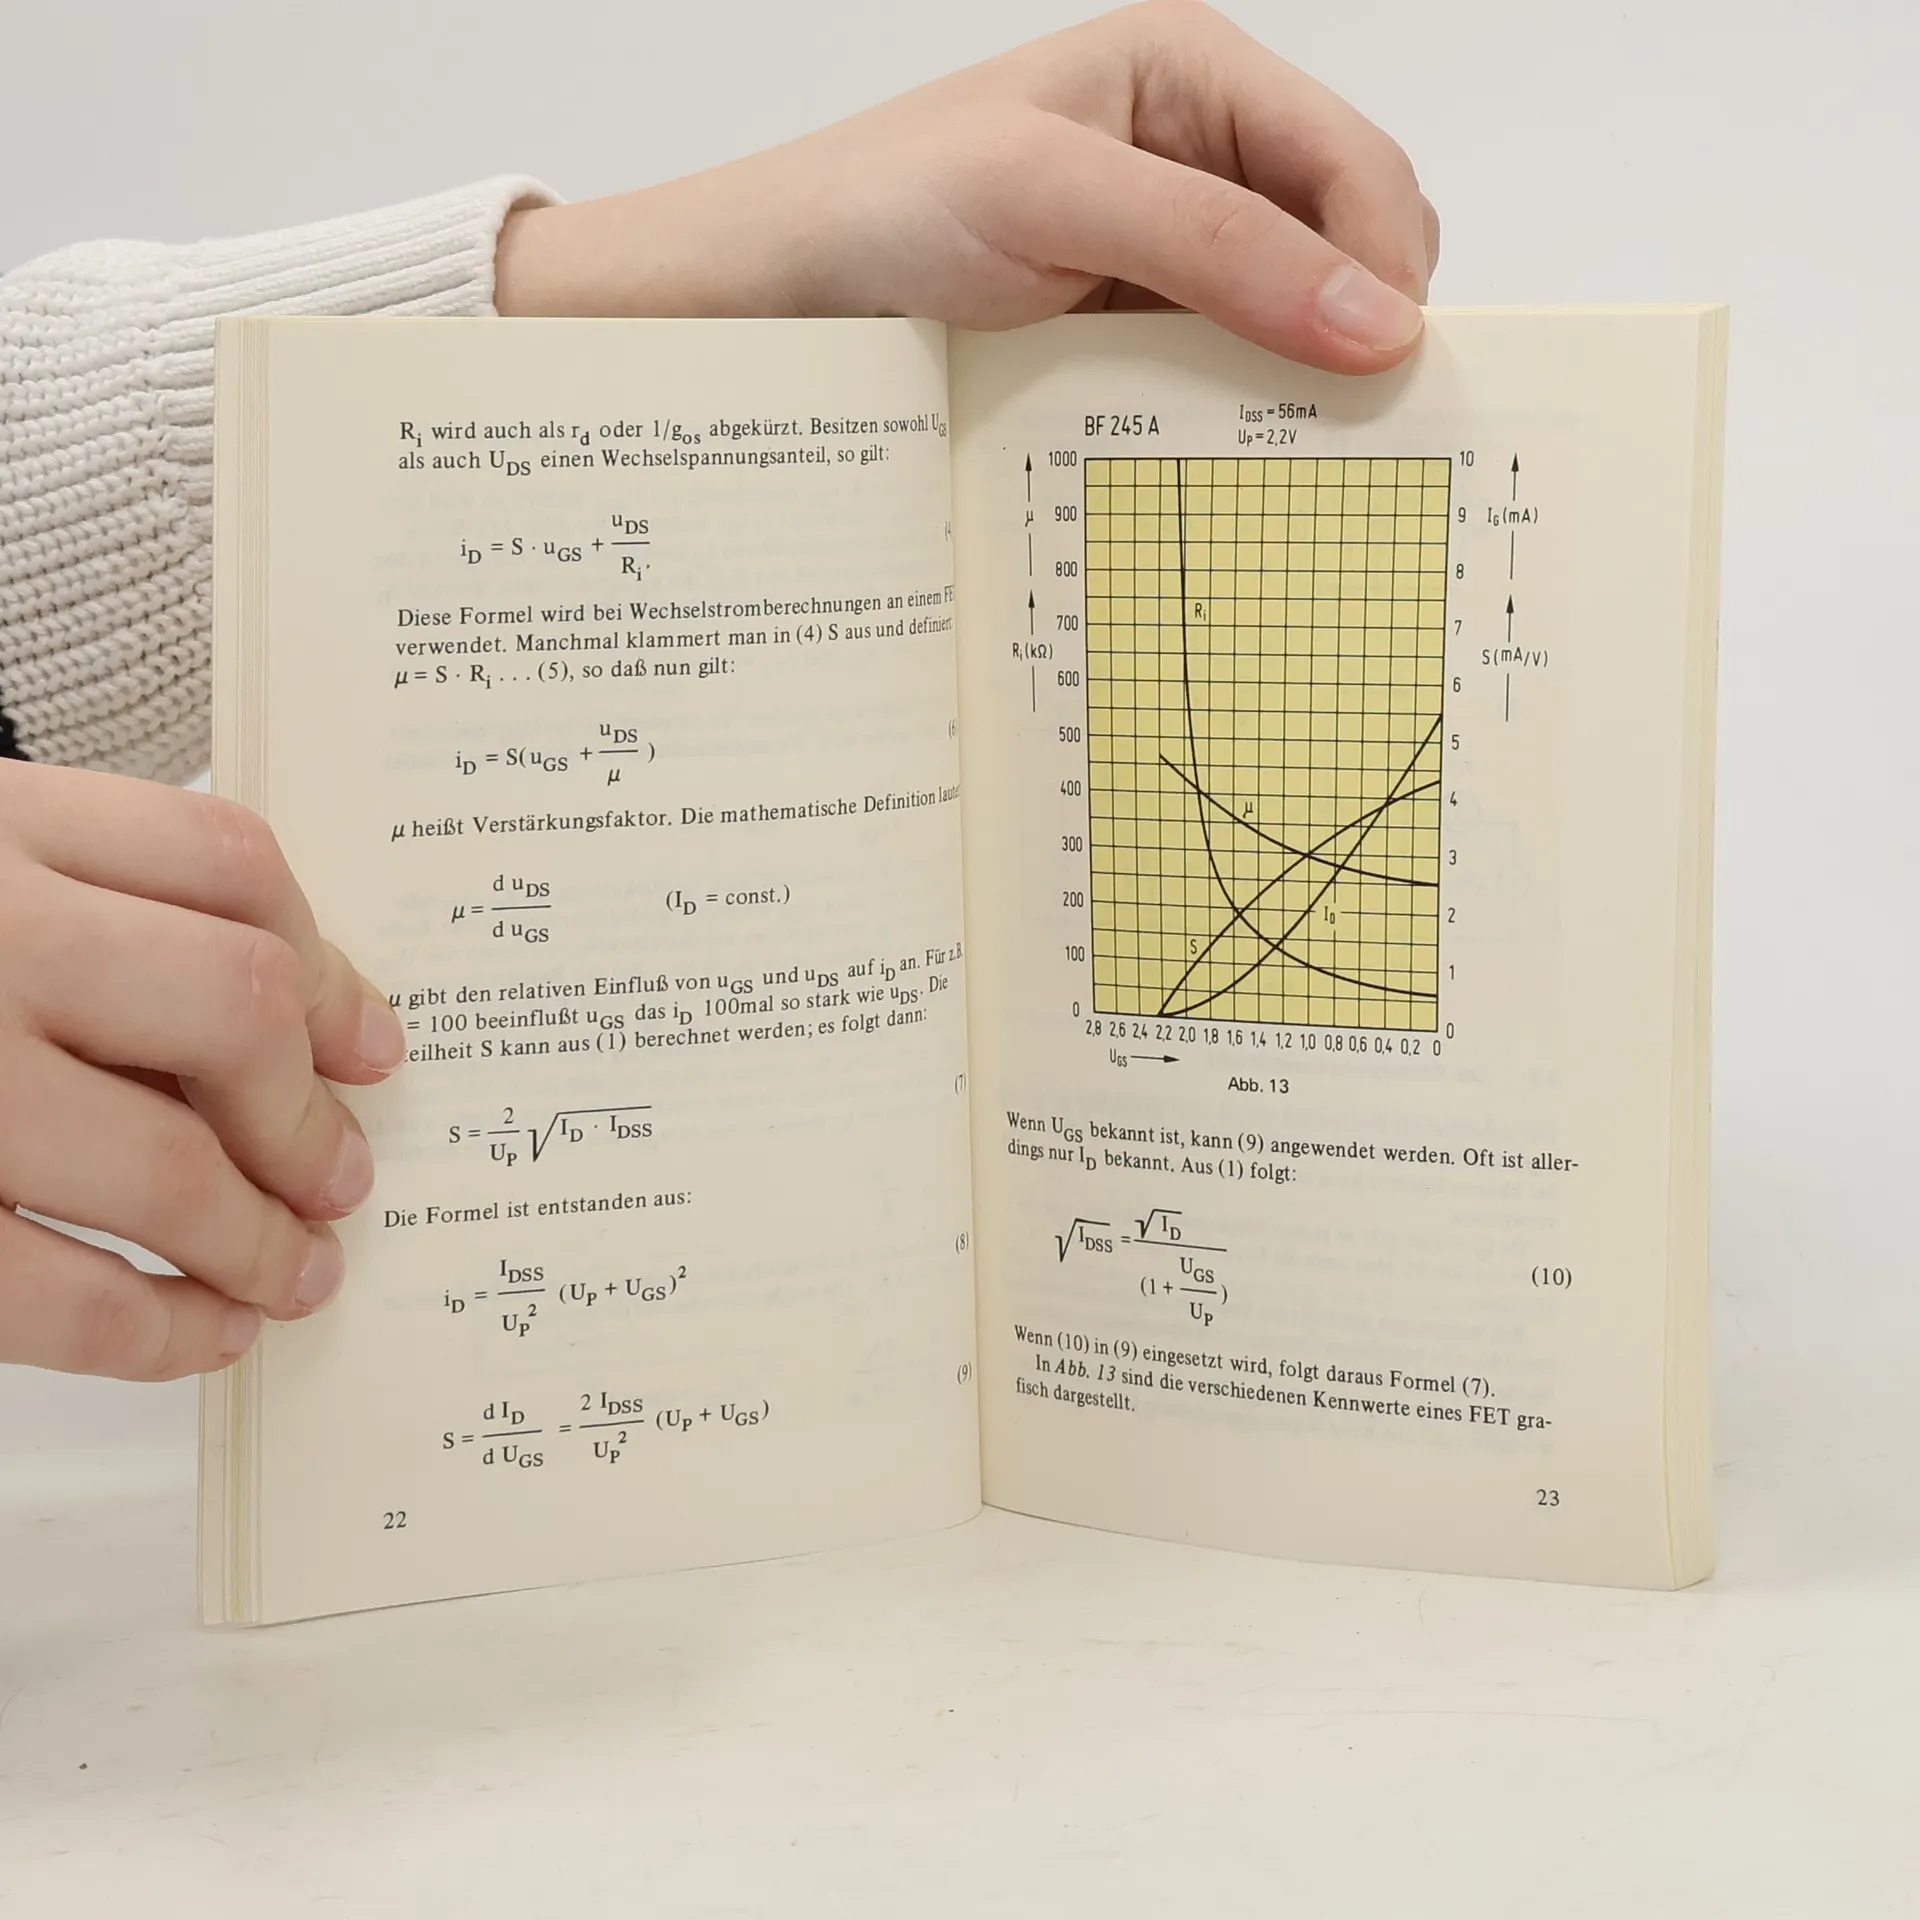 R_i wird auch als r_d oder 1/g_os abgekürzt. Besitzen sowohl U_GS
als auch U_DS einen Wechselspannungsanteil, so gilt:
i_D = S · u_GS + u_DS / R_i.
(4
Diese Formel wird bei Wechselstromberechnungen an einem FE
verwendet. Manchmal klammert man in (4) S aus und definiert
μ = S · R_i . . . (5), so daß nun gilt:
i_D = S(u_GS + u_DS / μ )
(6
μ heißt Verstärkungsfaktor. Die mathematische Definition laute
μ = d u_DS / d u_GS (I_D = const.)
μ gibt den relativen Einfluß von u_GS und u_DS auf i_D an. Für z.B.
= 100 beeinflußt u_GS das i_D 100mal so stark wie u_DS. Die
teilheit S kann aus (1) berechnet werden; es folgt dann:
(7)
S = 2 / U_P √ I_D · I_DSS
Die Formel ist entstanden aus:
(8)
i_D = I_DSS / U_P² (U_P + U_GS)²
(9)
S = d I_D / d U_GS = 2 I_DSS / U_P² (U_P + U_GS)
22
BF 245 A
I_DSS = 56mA
U_P = 2,2V
1000
900
800
700
600
500
400
300
200
100
0
μ
R_i (kΩ)
10
9
8
7
6
5
4
3
2
1
0
I_G (mA)
S (mA/V)
R_i
μ
I_D
S
2,8 2,6 2,4 2,2 2,0 1,8 1,6 1,4 1,2 1,0 0,8 0,6 0,4 0,2 0
U_GS
Abb. 13
Wenn U_GS bekannt ist, kann (9) angewendet werden. Oft ist aller-
dings nur I_D bekannt. Aus (1) folgt:
√I_DSS = √I_D / (1 + U_GS / U_P) (10)
Wenn (10) in (9) eingesetzt wird, folgt daraus Formel (7).
In Abb. 13 sind die verschiedenen Kennwerte eines FET gra-
fisch dargestellt.
23